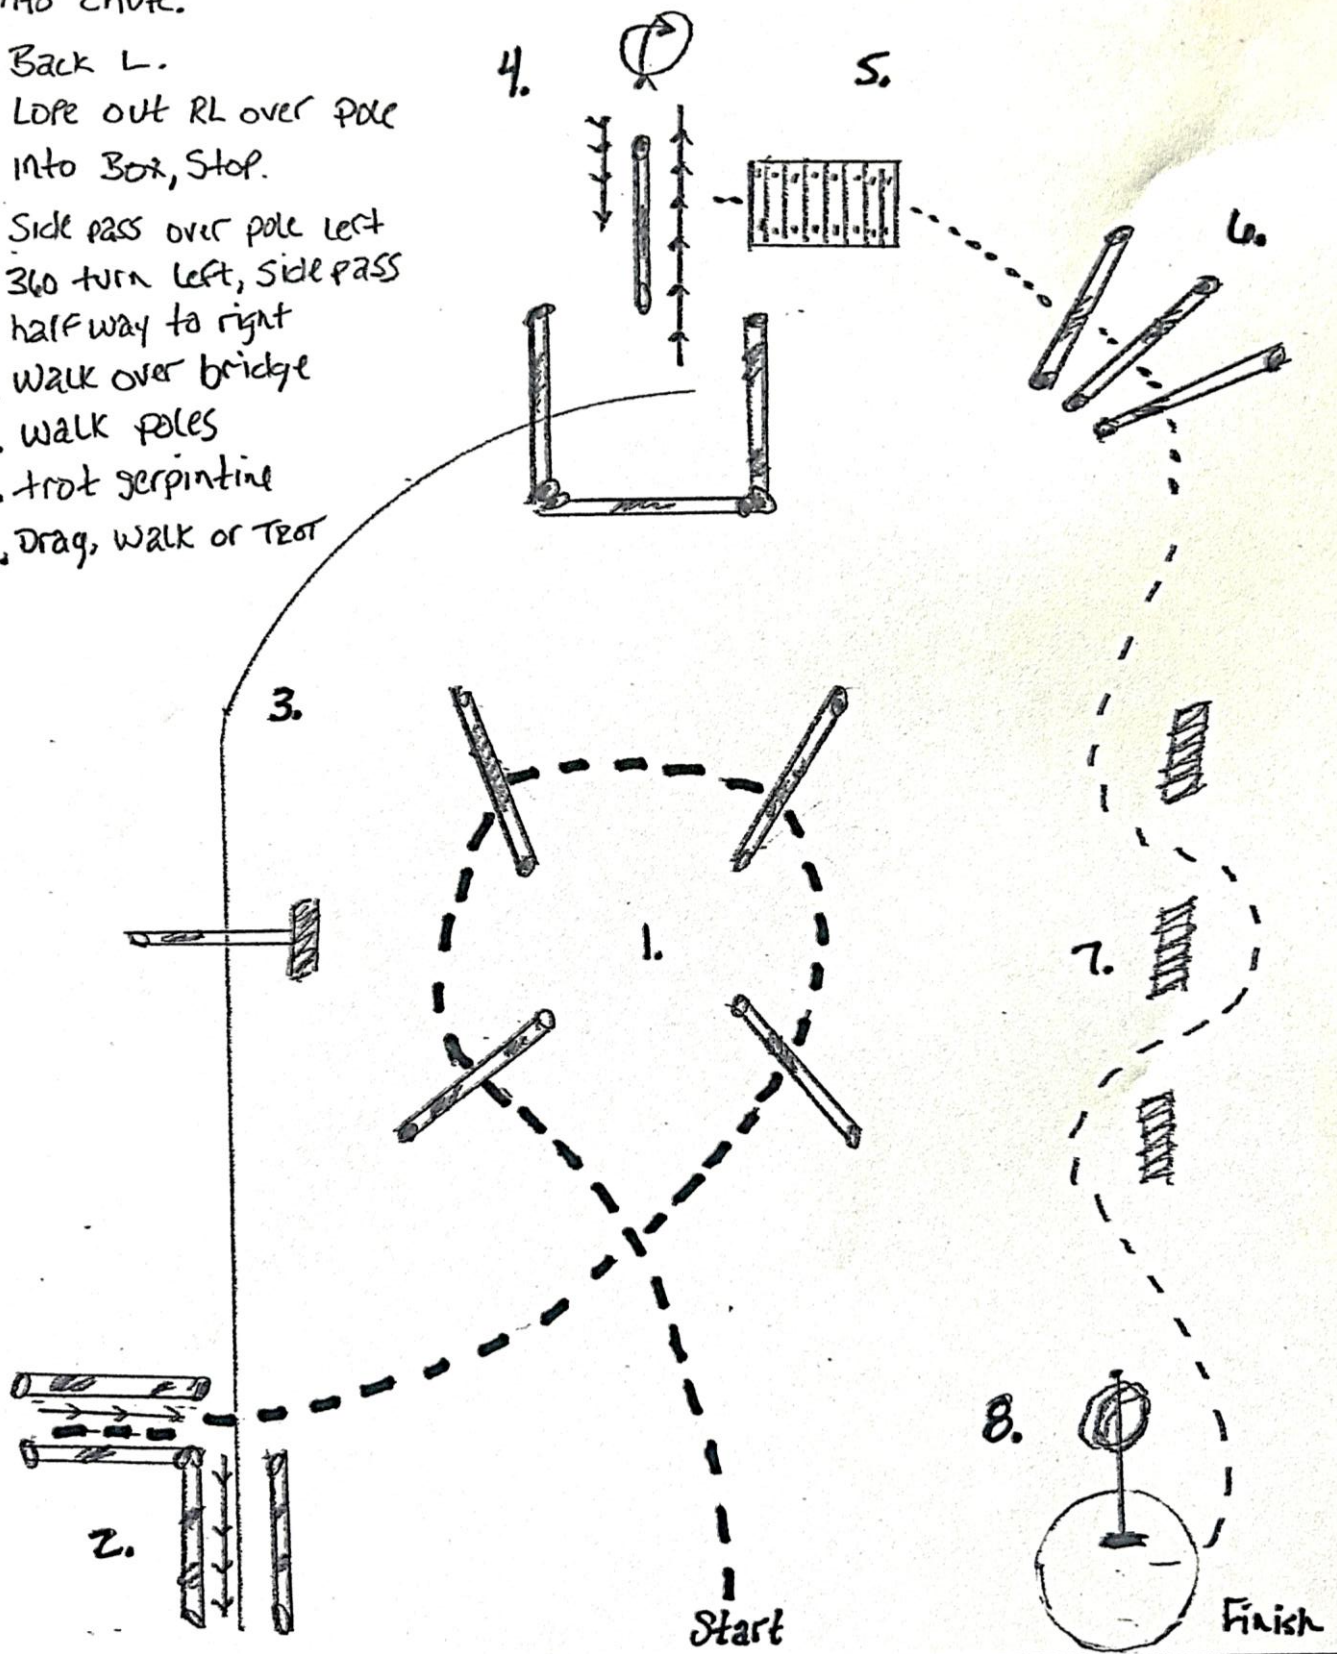 into chute.
Back L.
Lope out RL over pole
into Box, Stop.
Side pass over pole left
360 turn left, sidepass
halfway to right
walk over bridge
. walk poles
. trot serpintine
. Drag, walk or TROT
4.
5.
6.
3.
1.
7.
2.
8.
Start
Finish